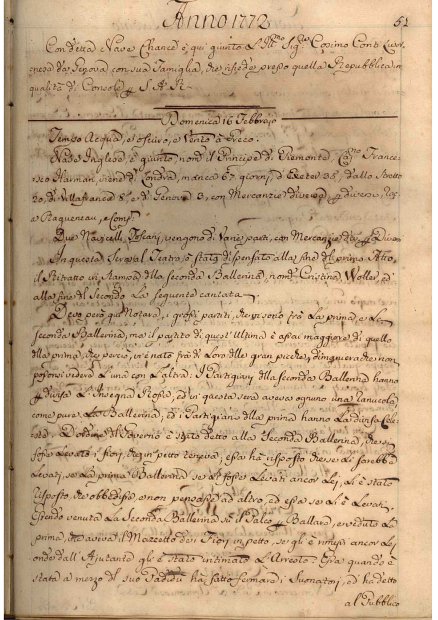 Anno 1772
51
Con detta Nave Chance è qui giunto l'Ill.mo Sig.re Cosimo Conti
da Genova con sua Famiglia, che risiede presso quella Repubblica in
qualità di Console S. A. R.
Domenica 16 Febbrajo
Tempo Acqua, e oscuro, e Vento à Greco.
Nave Inglese, è giunta, nom.ta il Principe di Piemonte, Cap.no France-
sco Harman, viene di Londra, manca 67. giorni, d'Exeter 35, dallo Stretto
20, di Villafranca 8, e di Genova 3, con Mercanzie diverse p diversi,
e Raqueneau, e Comp.
Due Navicelli Toscani, vengono di Varie parti, con Mercanzie p Diversi
In questa Sera al Teatro, è stata dispensato alla fine del primo Atto,
il Ritratto in Stampa della Seconda Ballerina, nom.ta Cristina Woller, ed
alla fine del Secondo la sequente cantata.
Devo però qui Notare, i grossi partiti, che vi sono frà la prima, e la
Seconda Ballerina, mà il partito di quest'Ultima è assai maggiore di quello
della prima, che perciò, vi è nato frà di Loro delle gran picche, dimaniera che non
possonsi vedere l'una con l'altra. I Partigiani della Seconda Ballerina hanno
p divisa l'Insegna Rosa, ed in questa sera aveva ognuno una
come pure la Ballerina, ed i Partigiani della prima hanno la divisa Cele-
ste. D'ordine del Governo è stato detto alla Seconda Ballerina, che si
fosse levata i fiori, che in petto teneva, essa hà risposto che se li sarebbe
levati, se la prima Ballerina se li fosse levati ancor Lei, li è stato
risposto, che obbedisse, e non pensasse ad altro, ed essa se li è levati.
Essendo venuta la Seconda Ballerina sù il Palco p Ballare, e veduto la
prima, che aveva il Mazzetto dei Fiori in petto, se gli è rimessi ancor Lei
onde dall'Ajutante gli è stato intimato l'Arresto: Essa quando è
stata a mezzo del suo Padedù hà fatto fermare i Suonatori, ed hà detto
al Pubblico